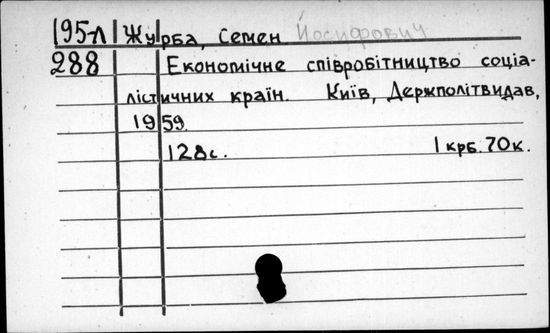 195-Л Журба, Семен Йосифович
288 Економічне співробітництво соціа-
лістичних країн. Київ, Держполітвидав,
1959.
128с. 1 крб. 70к.